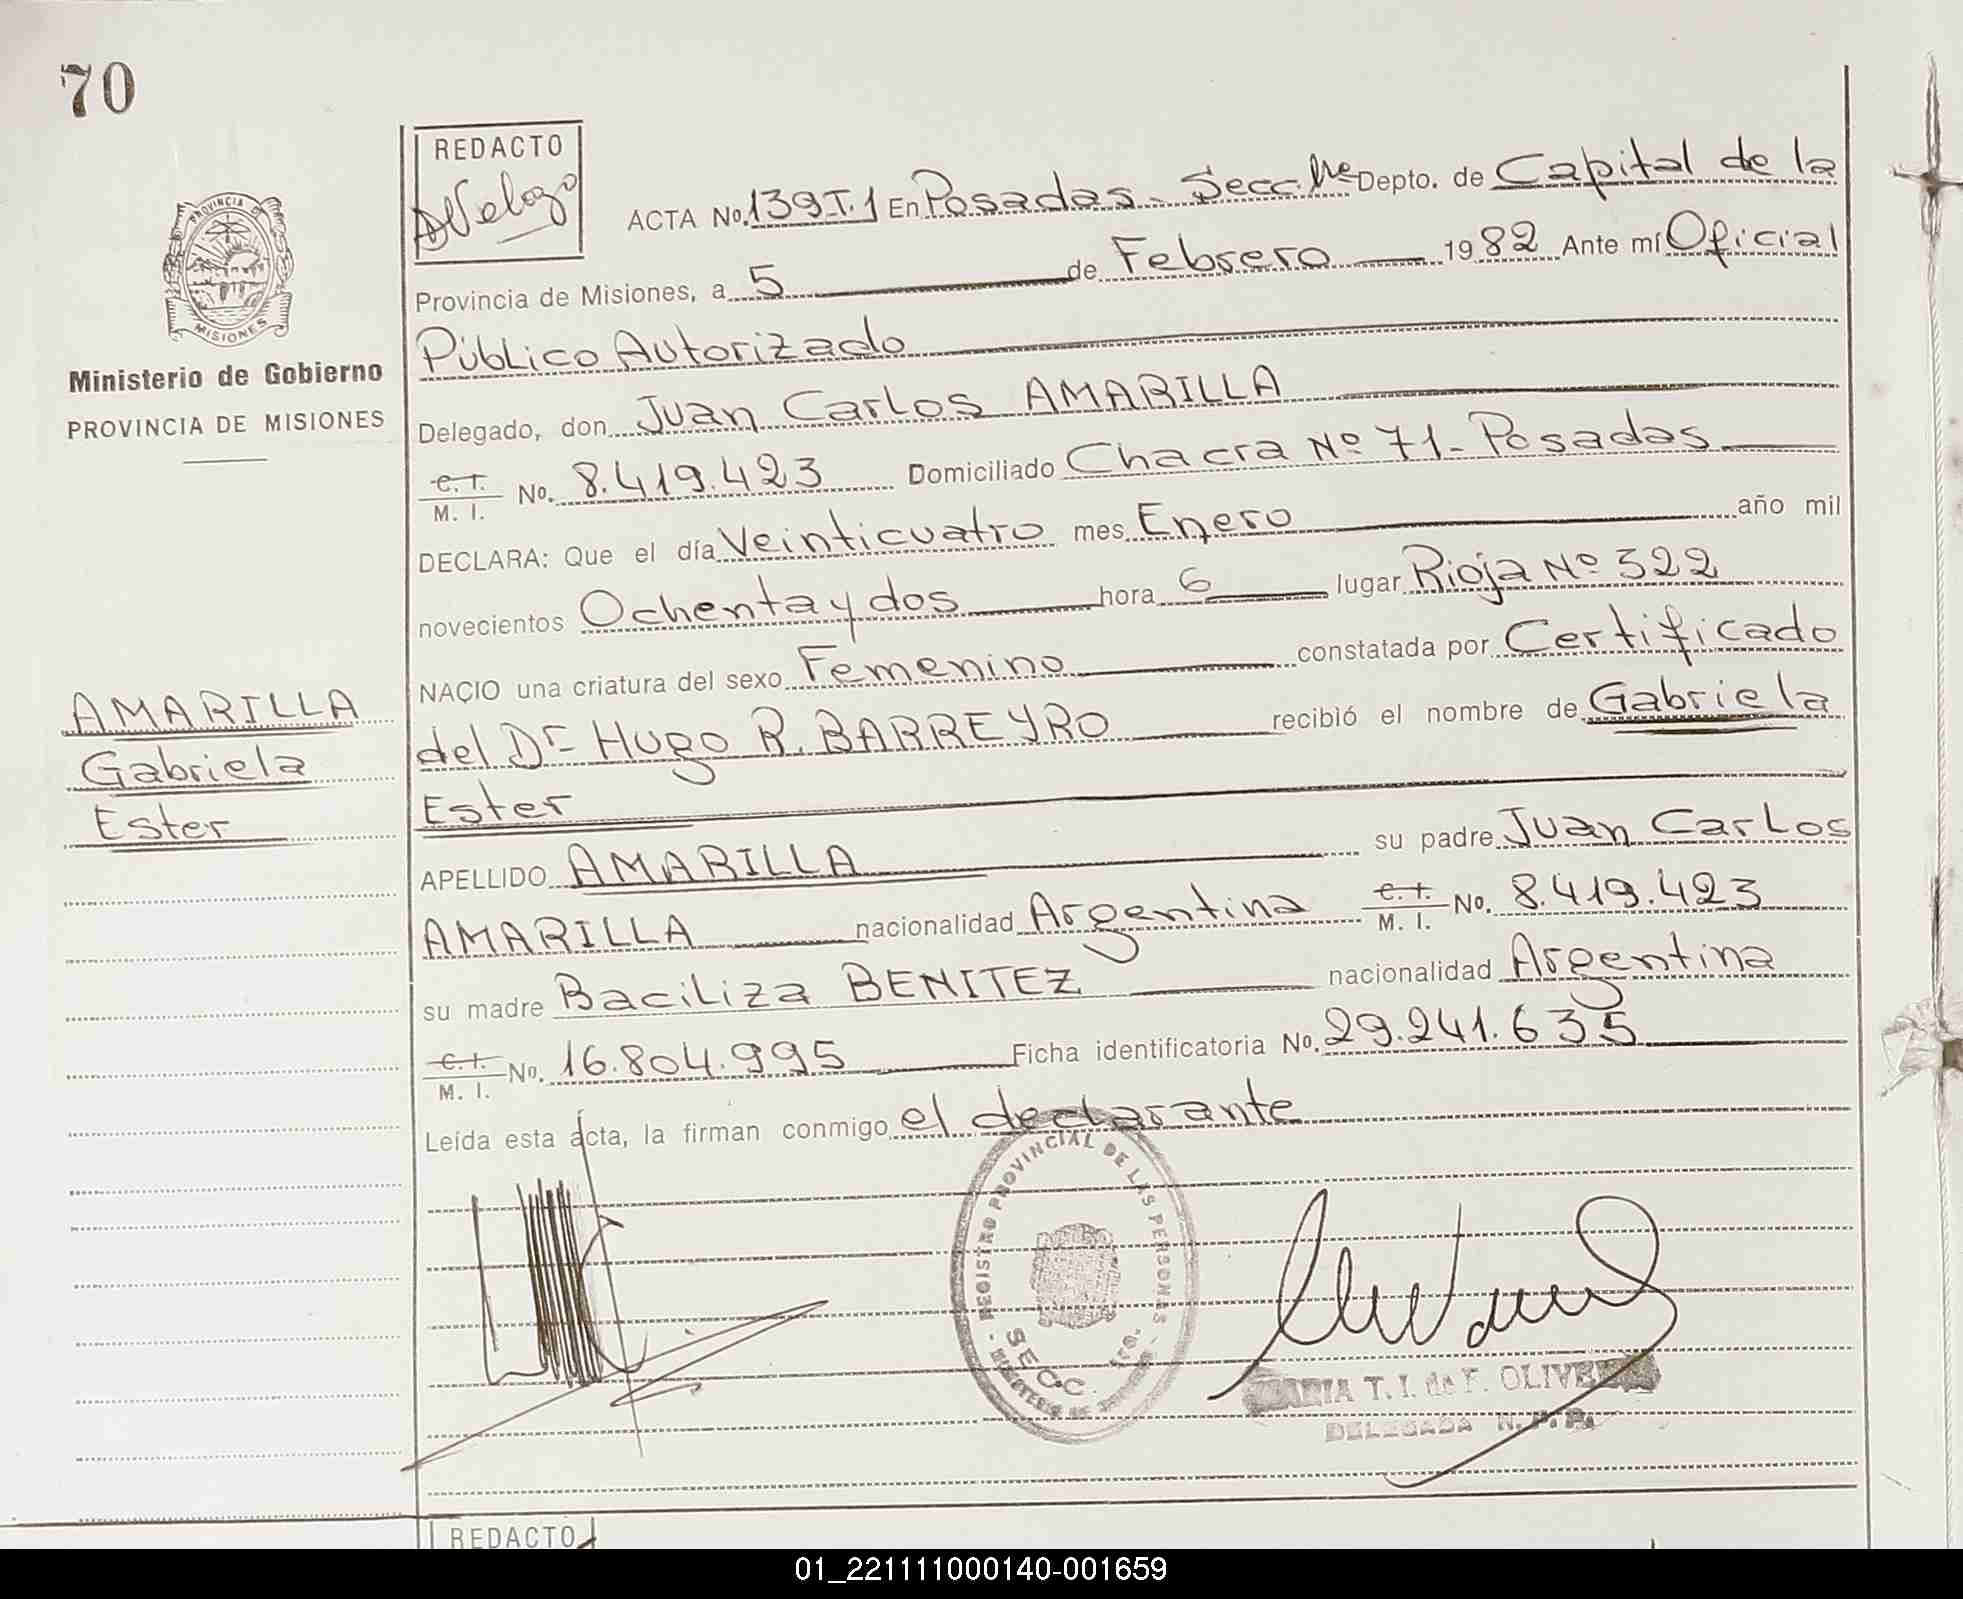 70
REDACTO
ACTA No. 139 T. 1 En Posadas - Secc. Depto. de Capital de la
Provincia de Misiones, a 5 de Febrero 1982 Ante mí Oficial
Público Autorizado
Delegado, don Juan Carlos AMARILLA
C. I. / M. I. No. 8.419.423 Domiciliado Chacra Nº 71 - Posadas
DECLARA: Que el día Veinticuatro mes Enero año mil
novecientos Ochenta y dos hora 6 lugar Rioja Nº 322
NACIO una criatura del sexo Femenino constatada por Certificado
del Dr Hugo R. BARREYRO recibió el nombre de Gabriela
Ester
APELLIDO AMARILLA su padre Juan Carlos
AMARILLA nacionalidad Argentina C. I. / M. I. No. 8.419.423
su madre Baciliza BENITEZ nacionalidad Argentina
C. I. / M. I. No. 16.804.995 Ficha identificatoria No. 29.241.635
Leída esta acta, la firman conmigo el declarante
PROVINCIA D
MISIONES
Ministerio de Gobierno
PROVINCIA DE MISIONES
AMARILLA
Gabriela
Ester
REGISTRO PROVINCIAL DE LAS PERSONAS
SECC.
MARIA T. I. de F. OLIVERA
DELEGADA R. P. P.
REDACTO
01_221111000140-001659